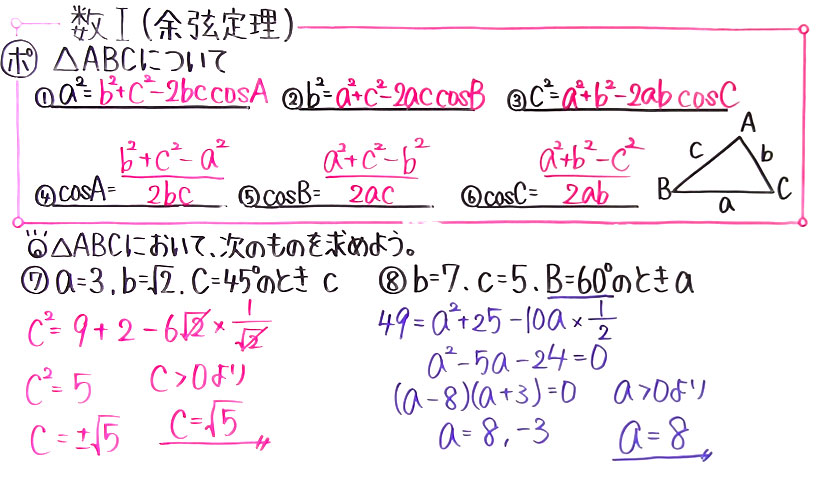 数Ⅰ(余弦定理)
ポ △ABCについて
① a²=b²+c²-2bc cosA ② b²=a²+c²-2ac cosB ③ c²=a²+b²-2ab cosC
④ cosA=(b²+c²-a²)/2bc ⑤ cosB=(a²+c²-b²)/2ac ⑥ cosC=(a²+b²-c²)/2ab
A
c b
B C
a
△ABCにおいて、次のものを求めよう。
⑦ a=3、b=√2、C=45°のとき c
c²=9+2-6√2×1/√2
c²=5 c>0より
c=±√5 c=√5
⑧ b=7、c=5、B=60°のとき a
49=a²+25-10a×1/2
a²-5a-24=0
(a-8)(a+3)=0 a>0より
a=8,-3 a=8